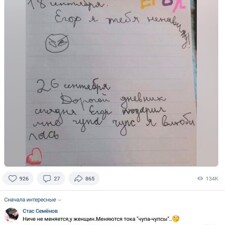 18 сентября.
Егор я тебя ненавижу!
26 сентября
Дорогой дневник
сегодня Егор подарил
мне чупа чупс я влюби
лась
926
27
865
134K
Сначала интересные
Стас Семёнов
Ниче не меняется,у женщин.Меняются тока "чупа-чупсы"..